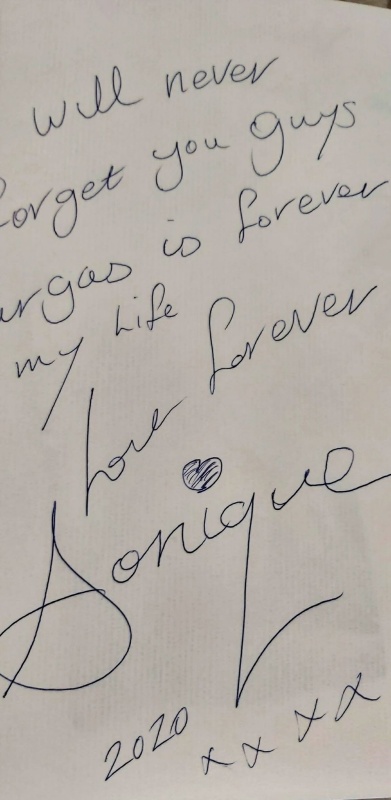 will never
forget you guys
urgas is forever
my Life
Love forever
Sonique
2020 xx xx